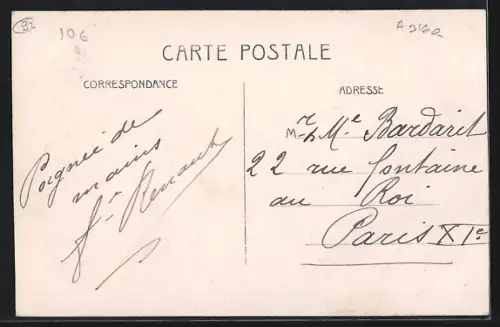 92
10€
A 3162
CARTE POSTALE
CORRESPONDANCE
ADRESSE
Poignée de
mains
Renault
M. r & Me Bardarit
22 rue fontaine
au Roi
Paris XIe